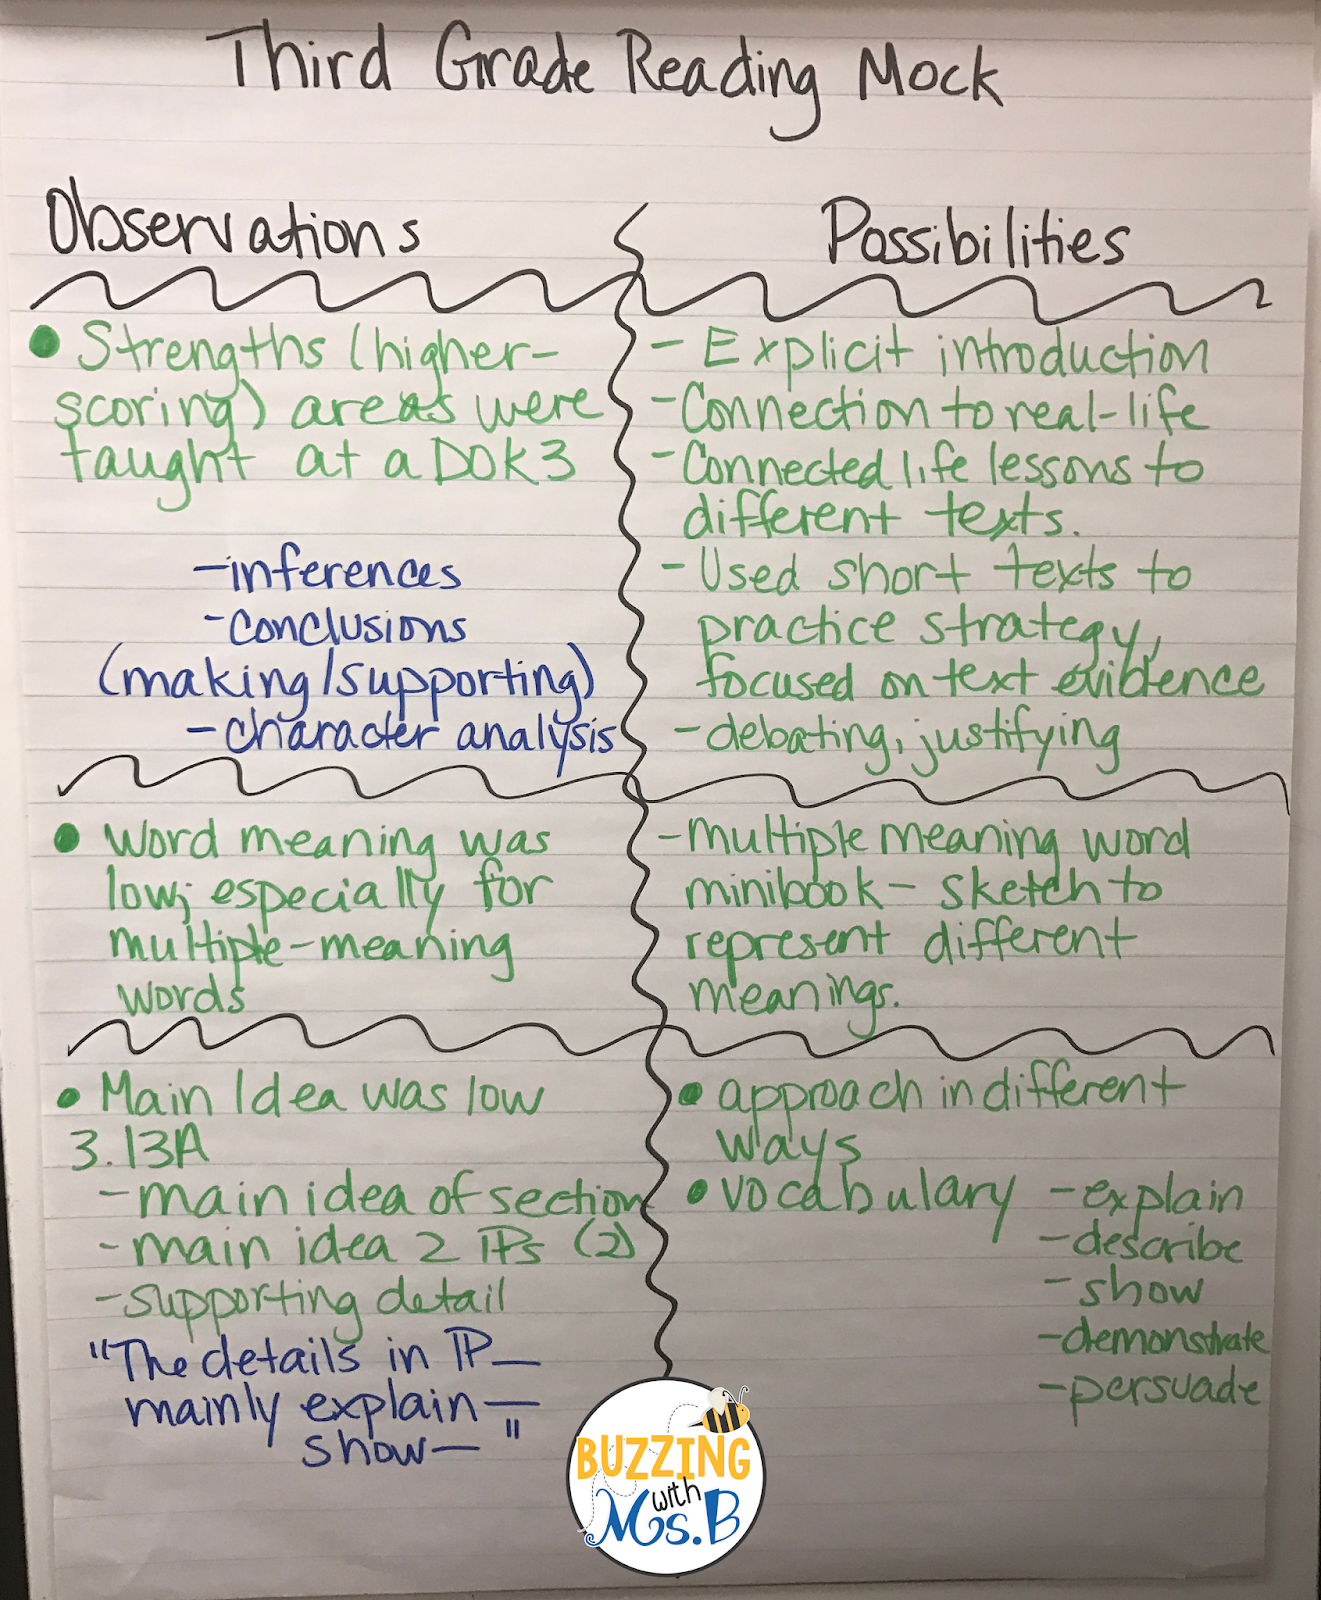 Third Grade Reading Mock
Observations
Possibilities
• Strengths (higher-
scoring) areas were
taught at a DOK3
-inferences
-conclusions
(making/supporting)
-character analysis
- Explicit introduction
- Connection to real-life
- Connected life lessons to
different texts.
- Used short texts to
practice strategy,
focused on text evidence
- debating, justifying
• Word meaning was
low; especially for
multiple-meaning
words
- multiple meaning word
minibook - sketch to
represent different
meanings.
• Main Idea was low
3.13A
- main idea of section
- main idea 2 ¶s (2)
- supporting detail
"The details in ¶ _
mainly explain —
show — "
• approach in different
ways
• vocabulary - explain
- describe
- show
- demonstrate
- persuade
BUZZING
with
Ms. B